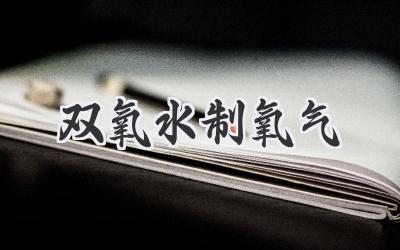 双氧水制氧气